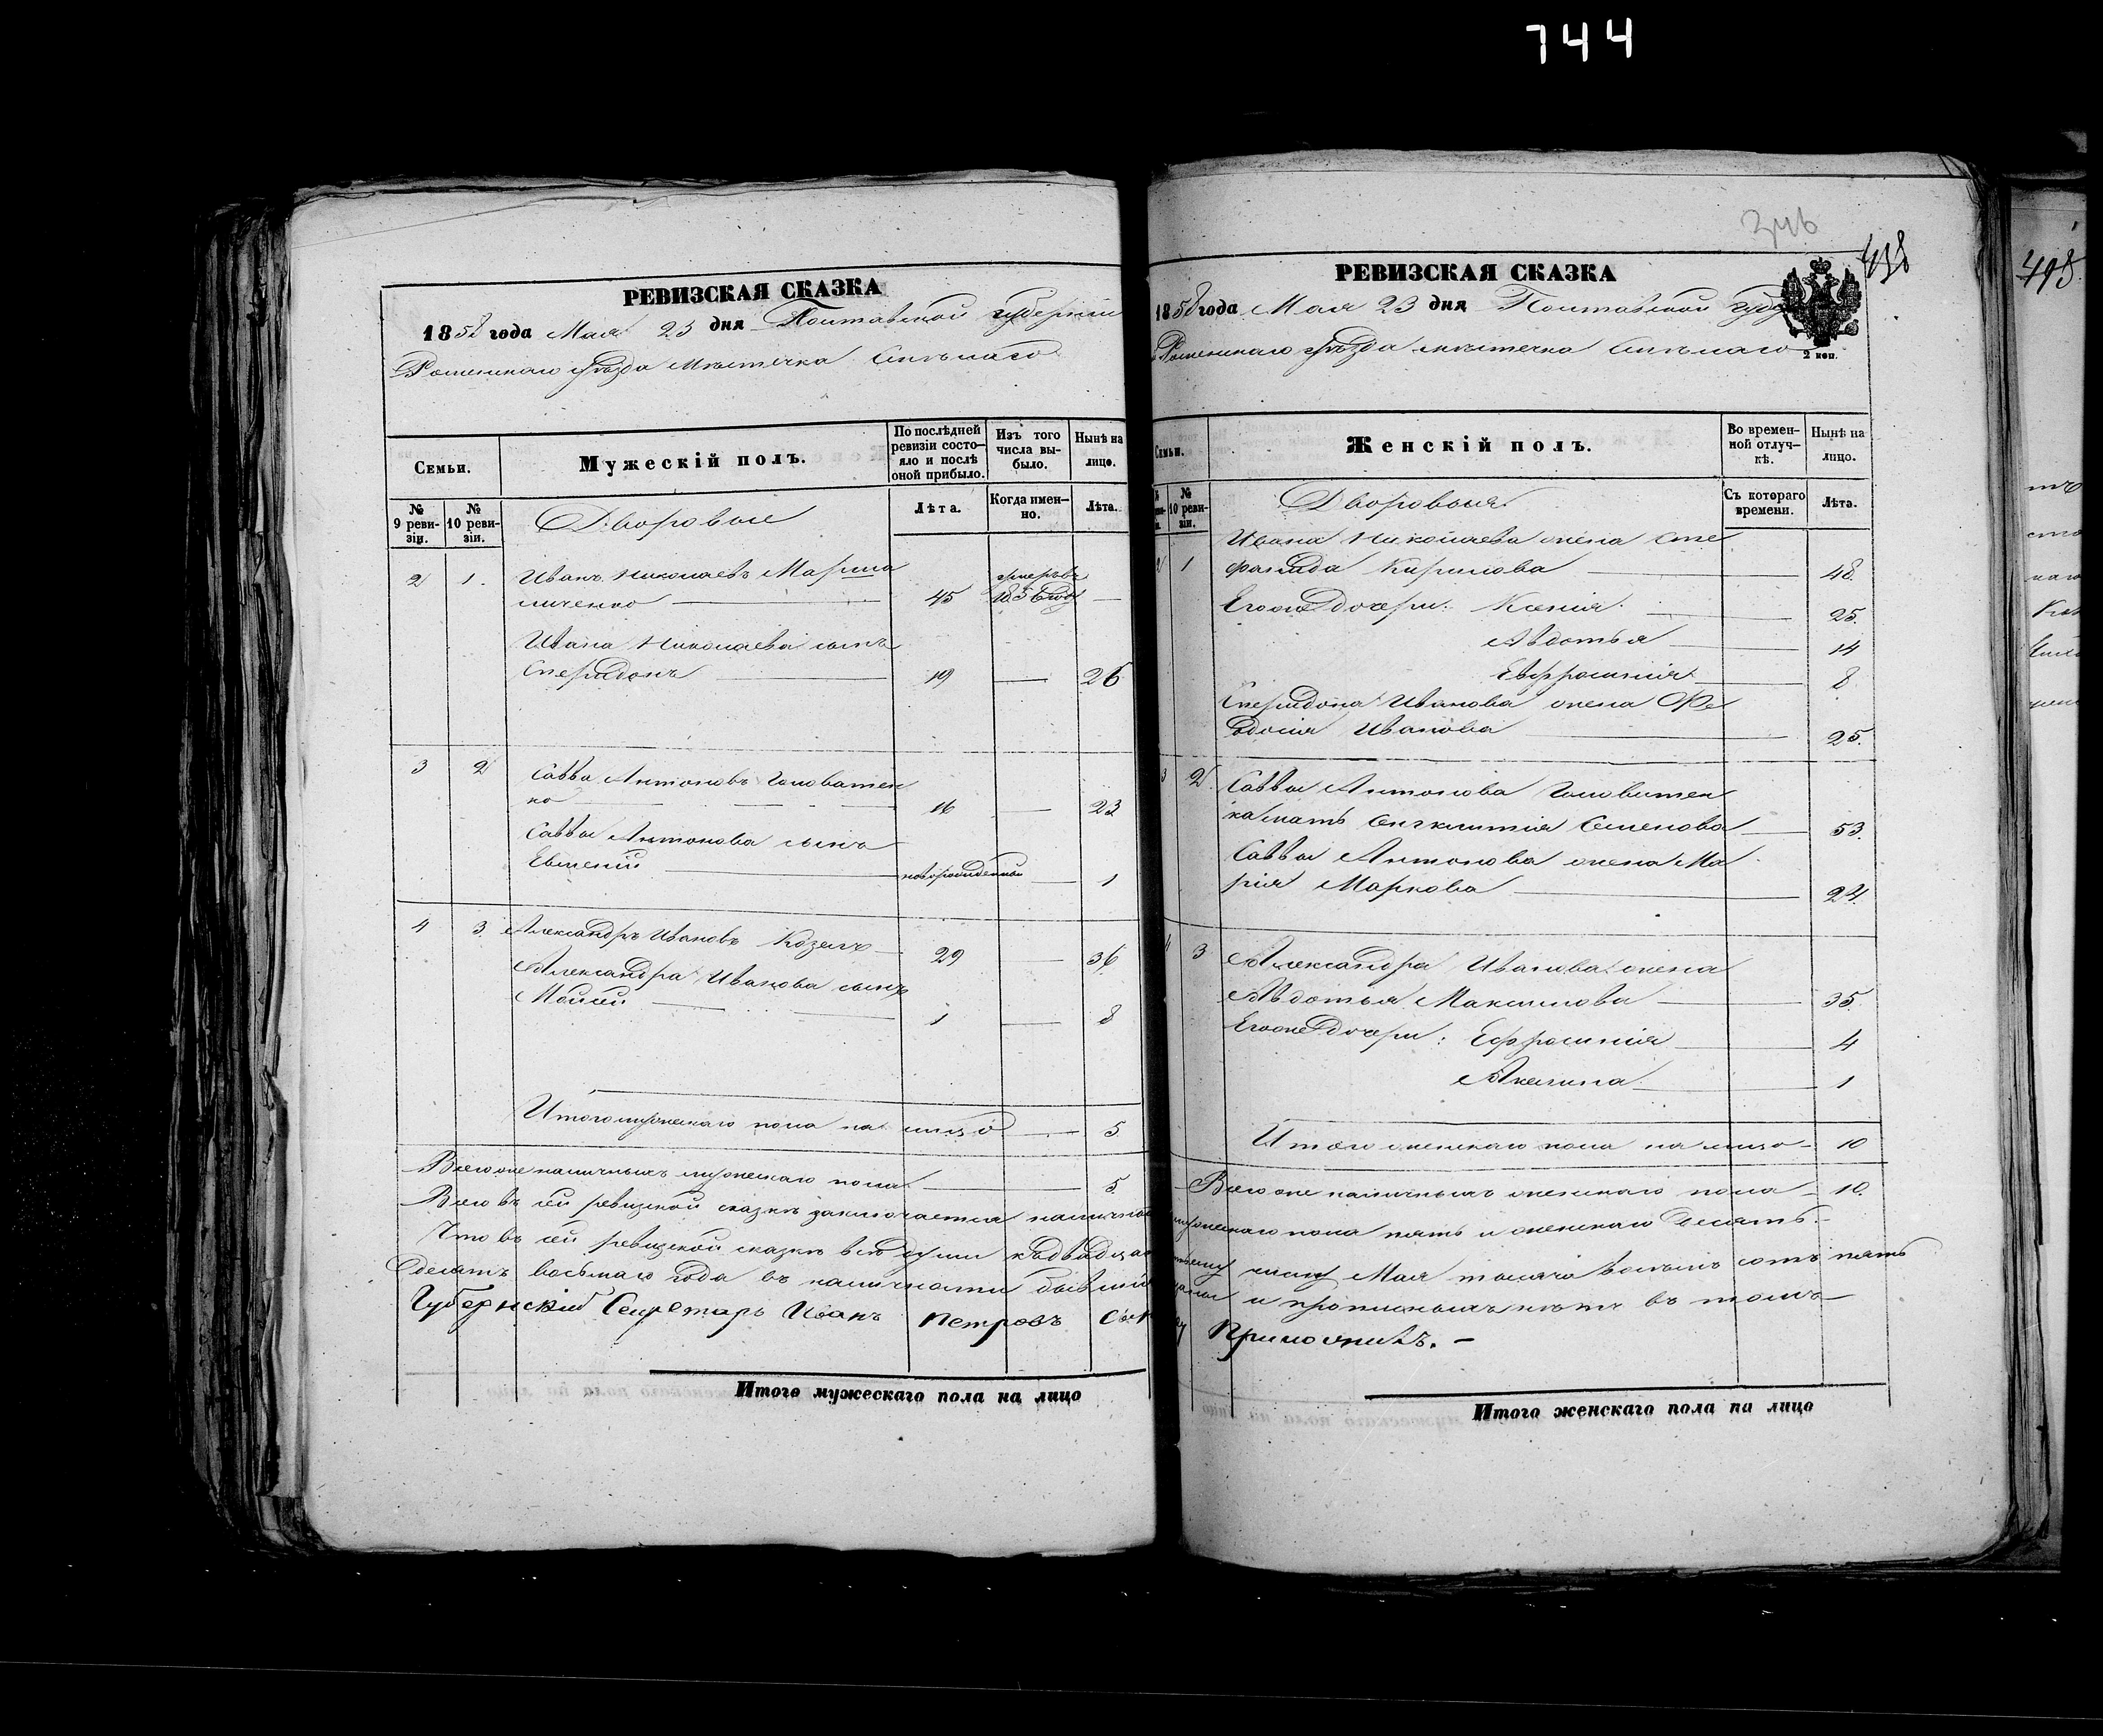 744
РЕВИЗСКАЯ СКАЗКА
1858 года Мая 23 дня Полтавской губерніи
Роменскаго уѣзда Мѣстечка Смѣлаго
Семьи.
Мужескій полъ.
По послѣдней ревизіи состояло и послѣ оной прибыло.
Изъ того числа выбыло.
Нынѣ на лицо.
№ 9 ревизіи.
№ 10 ревизіи.
Дворовые
Лѣта.
Когда именно.
Лѣта.
2 1. Иванъ Николаевъ
личенко — 45 умеръ въ 1856 году —
Ивана Николаева сынъ
Спиридонъ — 19 — 26
3 2 Савва Антоновъ Головатен
ко — 16 — 23
Саввы Антонова сынъ
Евгеній — новорожденный — 1
4 3. Александръ Ивановъ Козелъ — 29 — 36
Александра Иванова сынъ
Мойсей — 1 — 8
Итого мужескаго пола на лицо — 5
Всего же наличныхъ мужескаго пола — 5.
Всего въ сей ревизской сказкѣ заключается налични
Что въ сей ревизской сказкѣ всѣ души къ двадца
десятъ восьмаго года въ наличности бывшія
Губернскій Секретарь Иванъ Петровъ Сынъ
Итого мужескаго пола на лицо
346
498
РЕВИЗСКАЯ СКАЗКА
1858 года Мая 23 дня Полтавской губер
Роменскаго уѣзда мѣстечка Смѣлаго
2 коп.
Семьи.
Женскій полъ.
Во временной отлучкѣ.
Нынѣ на лицо.
№ 10 ревизіи.
Дворовыя
Съ котораго времени.
Лѣта.
2 1 Ивана Николаева жена Сте
фанида Кирилова — 48.
Егоже Дочери: Ксенія — 25.
Авдотья — 14
Евфросинія — 8
Спиридона Иванова жена Фе
одосія Иванова — 25.
3 2. Саввы Антонова Головатен
ка мать Синклитія Семенова — 53.
Саввы Антонова жена Ма
рія Маркова — 24.
4 3 Александра Иванова жена
Авдотья Максимова — 35.
Егоже Дочери: Ефросинія — 4
Акилина — 1
Итого женскаго пола на лицо — 10
Всего же наличныхъ женскаго пола — 10.
мужескаго пола пять и женскаго десять. —
числу Мая тысяча восемь сотъ пять
и прописныхъ нѣтъ въ томъ —
—
Итого женскаго пола на лицо
495